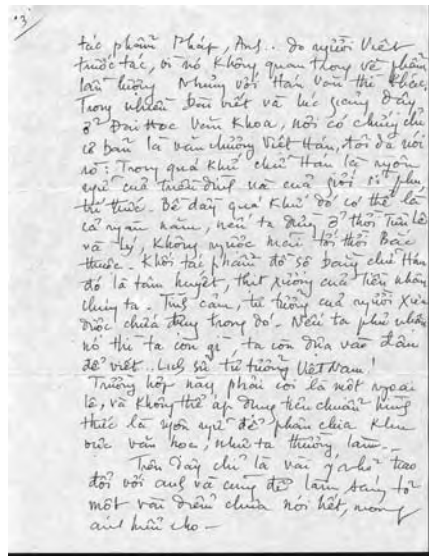 3
tác phẩm Pháp, Anh... do người Việt
trước tác, vì nó không quan trọng về phẩm
lẫn lượng. Nhưng với Hán văn thì khác.
Trong nhiều bài viết và lúc giảng dạy
ở Đại Học Văn Khoa, nơi có chứng chỉ
cơ bản là văn chương Việt Hán, tôi đã nói
rõ: Trong quá khứ chữ Hán là ngôn
ngữ của triều đình và của giới sĩ phu
trí thức. Bề dày quá khứ đó có thể là
cả ngàn năm, nếu ta dừng ở thời Tiền Lê
và Lý, không ngược mãi tới thời Bắc
thuộc. Khối tác phẩm đồ sộ bằng chữ Hán
đó là tâm huyết, thịt xương của tiền nhân
chúng ta. Tình cảm, tư tưởng của người xưa
được chứa đựng trong đó. Nếu ta phủ nhận
nó thì ta còn gì, ta còn dựa vào đâu
để viết.. Lịch sử tư tưởng Việt Nam!
Trường hợp này phải coi là một ngoại
lệ, và không thể áp dụng tiêu chuẩn hình
thức là ngôn ngữ để phân chia khu
vực văn học, như ta thường làm...
Trên đây chỉ là vài ý nhỏ trao
đổi với anh và cũng để làm sáng tỏ
một vài điểm chưa nói hết, mong
anh hiểu cho –